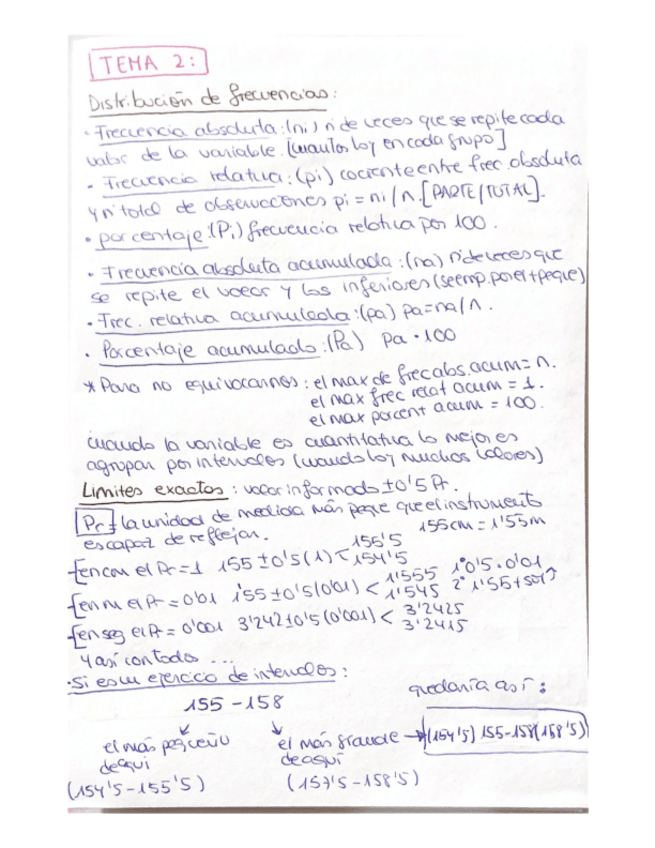 TEMA 2:
Distribución de frecuencias:
· Frecuencia absoluta: (ni) nº de veces que se repite cada
valor de la variable. [cuantos hay en cada grupo]
- Frecuencia relativa: (pi) cociente entre frec. absoluta
y nº total de observaciones pi = ni/n. [PARTE/TOTAL].
• porcentaje: (Pi) frecuencia relativa por 100.
· Frecuencia absoluta acumulada: (na) nº de veces que
se repite el valor y los inferiores (se emp. por el + peque)
· Frec. relativa acumulada: (pa) pa=na/n.
. Porcentaje acumulado: (Pa) pa · 100
* Para no equivocarnos: el max de frec abs. acum = n.
el max frec relat acum = 1.
el max porcent acum = 100.
cuando la variable es cuantitativa lo mejor es
agrupar por intervalos (cuando hay muchos valores)
Límites exactos: valor informado ± 0'5 Pr.
Pr = la unidad de medida más peque que el instrumento
es capaz de reflejar.
155cm = 1'55m
{en cm el Pr=1 155 ± 0'5 (1) < 155'5 154'5
{en m el Pr = 0'01 1'55 ± 0'5 (0'01) < 1'555 1'545 1º 0'5 · 0'01 2º 1'55 +
{en seg el Pr = 0'001 3'242 ± 0'5 (0'001) < 3'2425 3'2415
Y así con todos ...
·Si es un ejercicio de intervalos:
quedaría así:
155 - 158
el más pequeño de aquí
(154'5 - 155'5)
el más grande de aquí
(157'5 - 158'5)
→ (154'5) 155-158 (158'5)